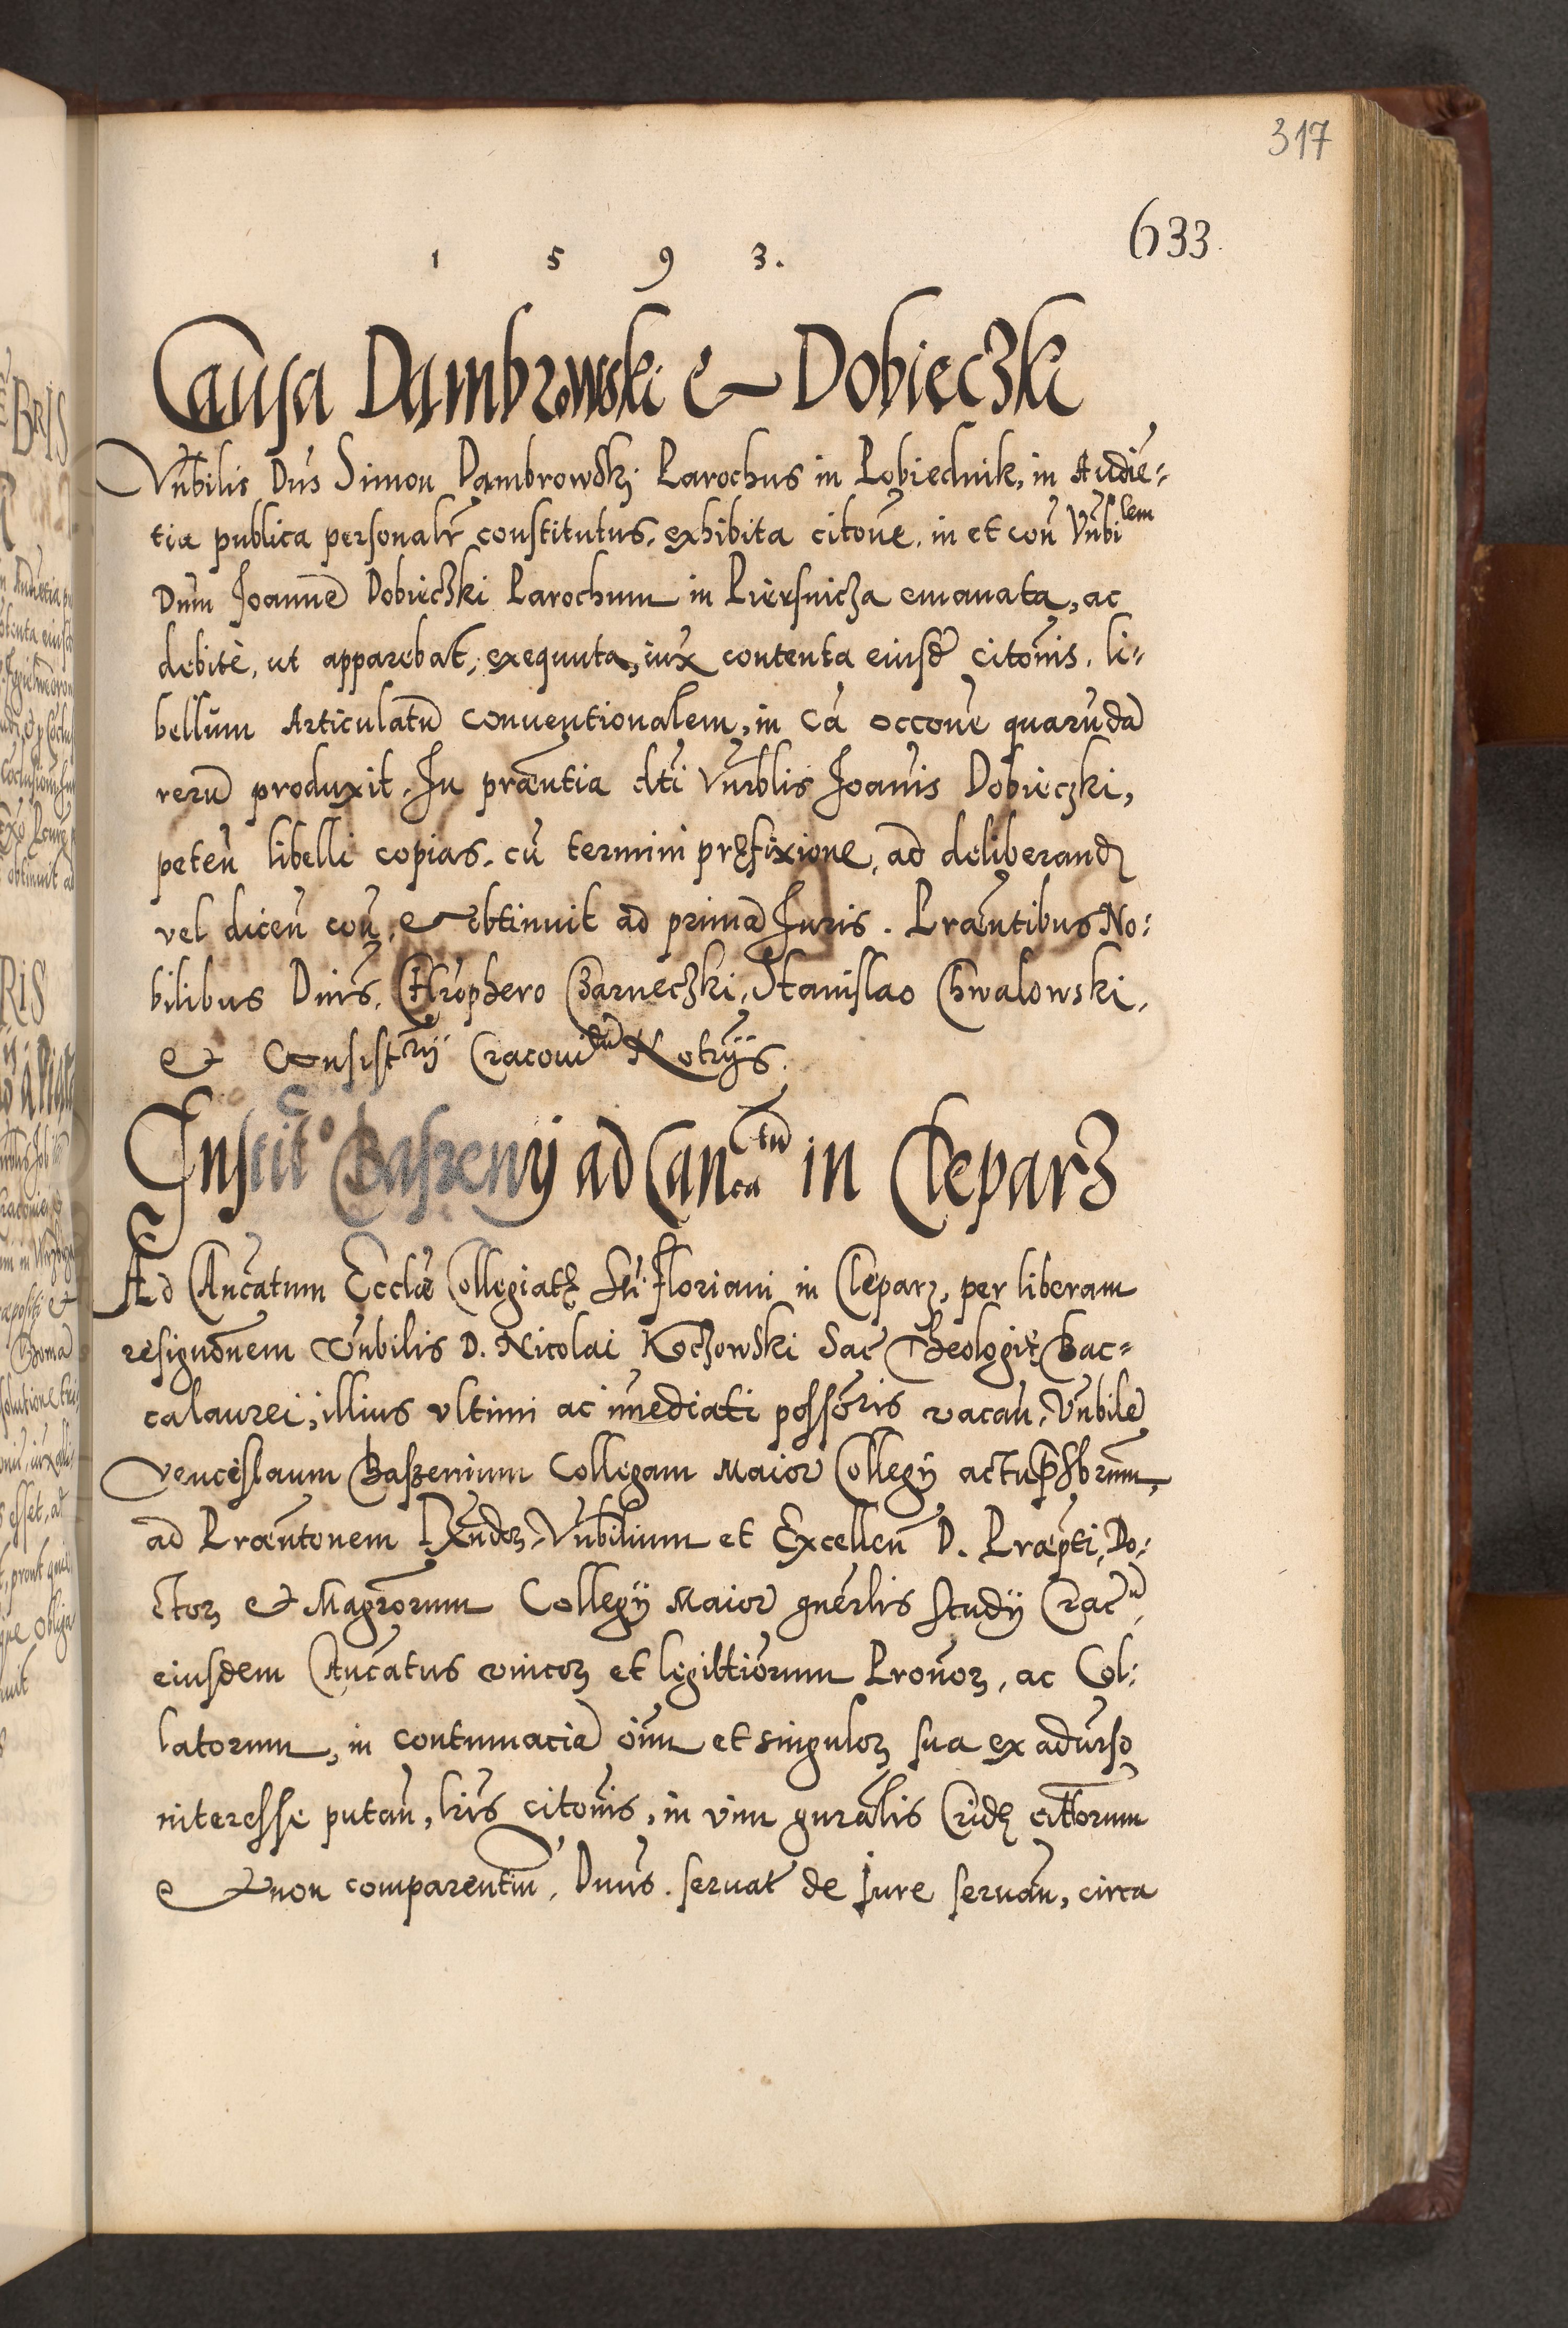 317
633.
1 5 9 3.
Causa Dambrowski & Dobieczki
Vn̄bilis Dn̄s Simon Dambrowskj Parochus in Pobiednik, in Audiē-
tia publica personalr̄ constitutus, exhibita citōne, in et con̄ Vn̄bilem
Dnm̄ Joannē Dobieczki Parochum in Piersnicza emanata, ac
debitè, ut apparebat, exequuta, iux̄ contenta eiusd̄ citōnis, li-
bellum Articulatū conventionalem, in cā occōne quarūdā
rerū produxit. In præn̄tia dti Vn̄rblis Joan̄is Dobieczki,
peten̄ libelli copias, cū termini præfixione, ad deliberand̄
vel dicen̄ con̄, & obtinuit ad primā Iuris. Præn̄tibus No:
bilibus Dnis̄, Chrōphero Czarneczki, Stanislao Chwalowski,
& Consistrij Cracouien̄ Notrijs.
Institō Baszenij ad Canca᷑tū in Cleparz
Ad Cancatum Ecclæ Collegiatę Sti Floriani in Cleparz, per liberam
resignōnem Vn̄bilis D. Nicolai Kochowski Sac̄ Theologię Bac-
calaurei, illius vltimi ac im̄ediati possōris vacan̄, Vn̄bilē
Venceslaum Baszenium Collegam Maior̄ Collegij actu Prsbrūm,
ad Præn̄tōnem Rx̄ndoꝝ, Vn̄bilium et Excellen̄ D. Præpti, Do:
ctoꝝ & Magrōrum Collegij Maior̄ gnērlis Studij Crac̄n
eiusdem Cancatus vnicoꝝ et legittiōrum Pronōꝝ, ac Col:
latorum, in contumaciā ōim et singuloꝝ sua ex adūrso
interesse putan̄, lrīs citōnis, in vim gnrālis Cridę citōrum
& non comparentiū, Dnus̄. servat̄ de Jure servan̄, circa